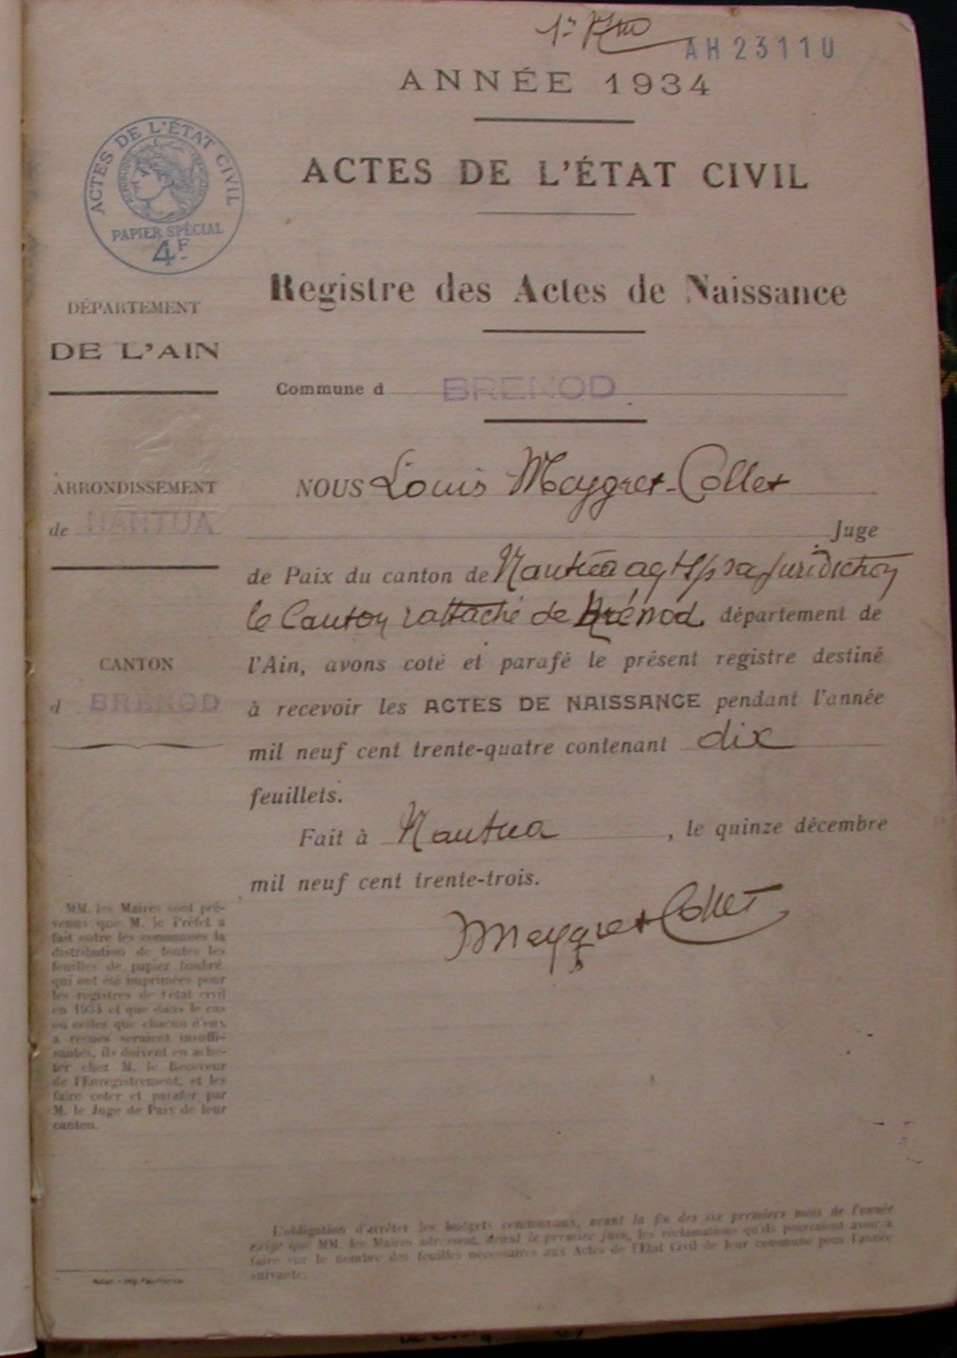 AH 23110
ANNÉE 1934
ACTES DE L'ÉTAT CIVIL
ACTES DE L'ÉTAT CIVIL
PAPIER SPÉCIAL
4F
Registre des Actes de Naissance
DÉPARTEMENT
DE L'AIN
Commune d BRENOD
ARRONDISSEMENT
de NANTUA
CANTON
d BRENOD
NOUS Louis Meygret-Collet
Juge
de Paix du canton de Nantua juridiction
le Canton rattaché de Brénod département de
l'Ain, avons coté et parafé le présent registre destiné
à recevoir les ACTES DE NAISSANCE pendant l'année
mil neuf cent trente-quatre contenant dix
feuillets.
Fait à Nantua, le quinze décembre
mil neuf cent trente-trois.
Meygret Collet
MM. les Maires sont pré-
venus que M. le Préfet a
fait entre les communes la
distribution de toutes les
feuilles de papier timbré
qui ont été imprimées pour
les registres de l'état civil
en 1934 et que dans le cas
où celles que chacun d'eux
a reçues seraient insuffi-
santes, ils doivent en ache-
ter chez M. le Receveur
de l'Enregistrement, et les
faire coter et parafer par
M. le Juge de Paix de leur
canton.
L'obligation d'arrêter les budgets communaux, avant la fin des six premiers mois de l'année
exige que MM. les Maires adressent, avant le premier juin, les réclamations qu'ils pourraient avoir à
faire sur le nombre des feuilles nécessaires aux Actes de l'Etat Civil de leur commune pour l'année
suivante.